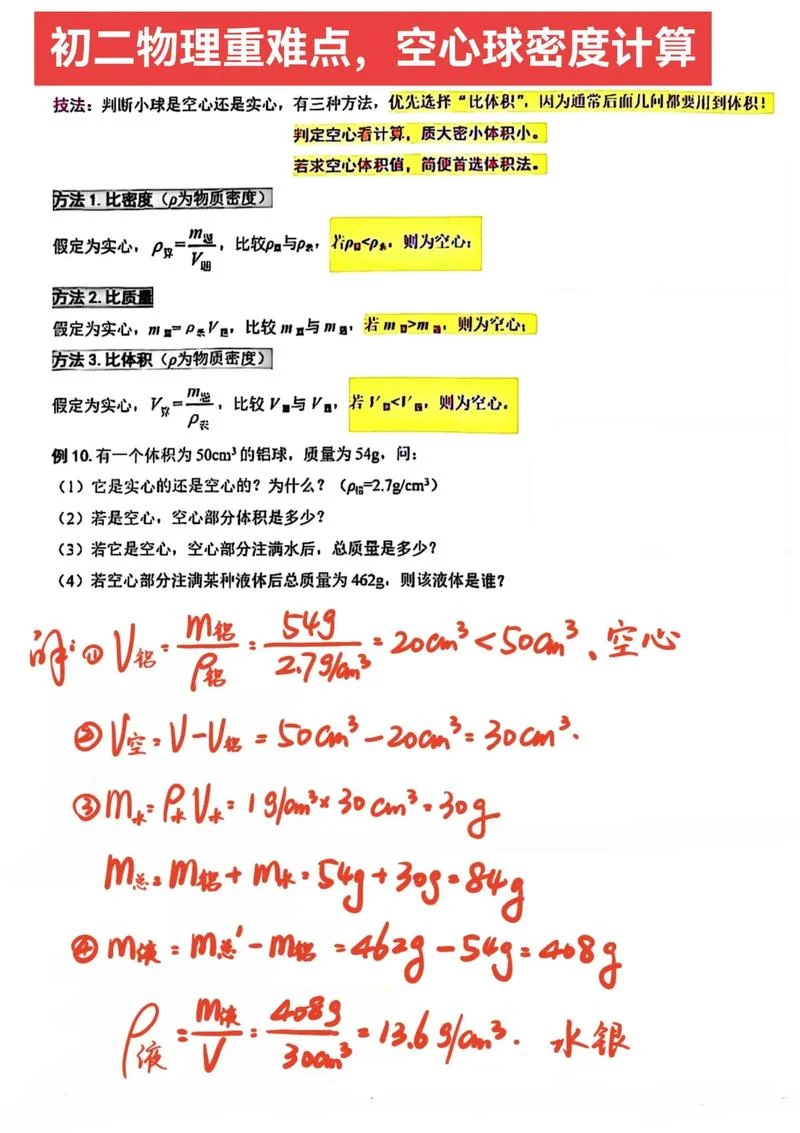 初二物理重难点，空心球密度计算
技法：判断小球是空心还是实心，有三种方法，优先选择“比体积”，因为通常后面几问都要用到体积！
判定空心看计算，质大密小体积小。
若求空心体积值，简便首选体积法。
方法 1. 比密度（ρ为物质密度）
假定为实心，ρ算=m题/V题，比较ρ算与ρ表，若ρ算<ρ表，则为空心；
方法 2. 比质量
假定为实心，m算=ρ表V题，比较 m算与 m题，若 m算>m题，则为空心；
方法 3. 比体积（ρ为物质密度）
假定为实心，V算=m题/ρ表，比较 V算与 V题，若 V算<V题，则为空心。
例 10. 有一个体积为 50cm³ 的铝球，质量为 54g，问：
（1）它是实心的还是空心的？为什么？（ρ铝=2.7g/cm³）
（2）若是空心，空心部分体积是多少？
（3）若它是空心，空心部分注满水后，总质量是多少？
（4）若空心部分注满某种液体后总质量为 462g，则该液体是谁？
解：① V铝=m铝/ρ铝=54g/2.7g/cm³=20cm³<50cm³、空心
② V空=V-V铝=50cm³-20cm³=30cm³.
③ m水=ρ水V水=1g/cm³×30cm³=30g
m总=m铝+m水=54g+30g=84g
④ m液=m总′-m铝=462g-54g=408g
ρ液=m液/V=408g/30cm³=13.6g/cm³. 水银